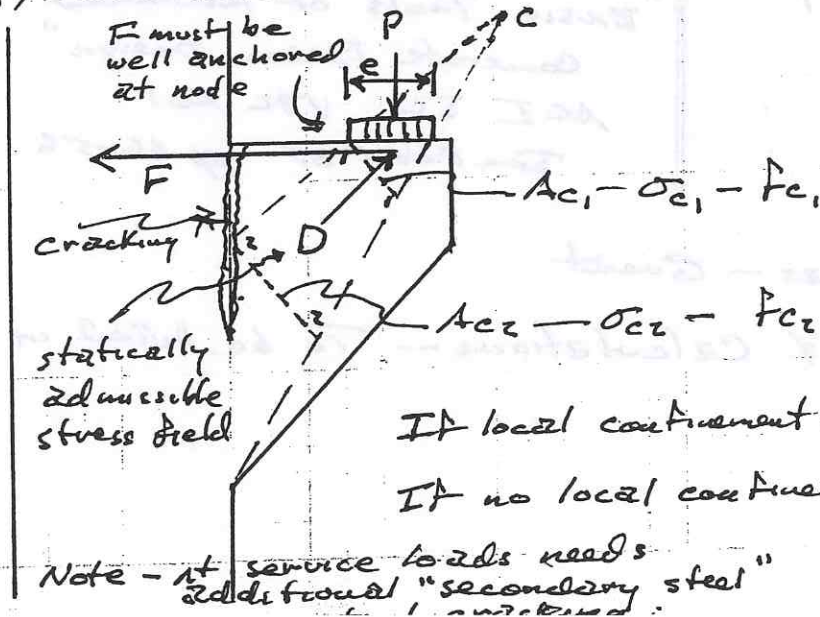 F must be
well anchored
at node
P
e
C
F
cracking
D
2
2
Ac1 - σc1 - fc1
Ac2 — σc2 - fc2
statically
admissible
stress field
If local confinement
If no local confine
Note - At service loads needs
additional "secondary steel"